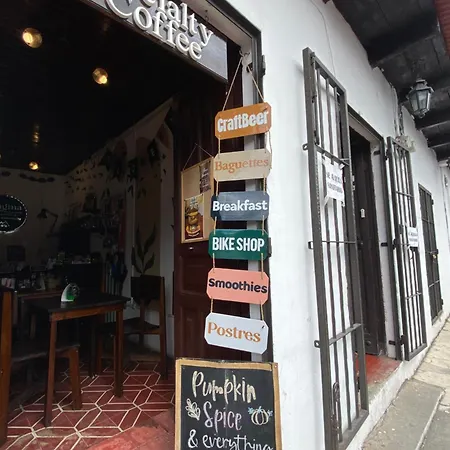 Specialty
Coffee
CraftBeer
Baguettes
Breakfast
BIKE SHOP
Smoothies
Postres
Pumpkin
Spice
& everything